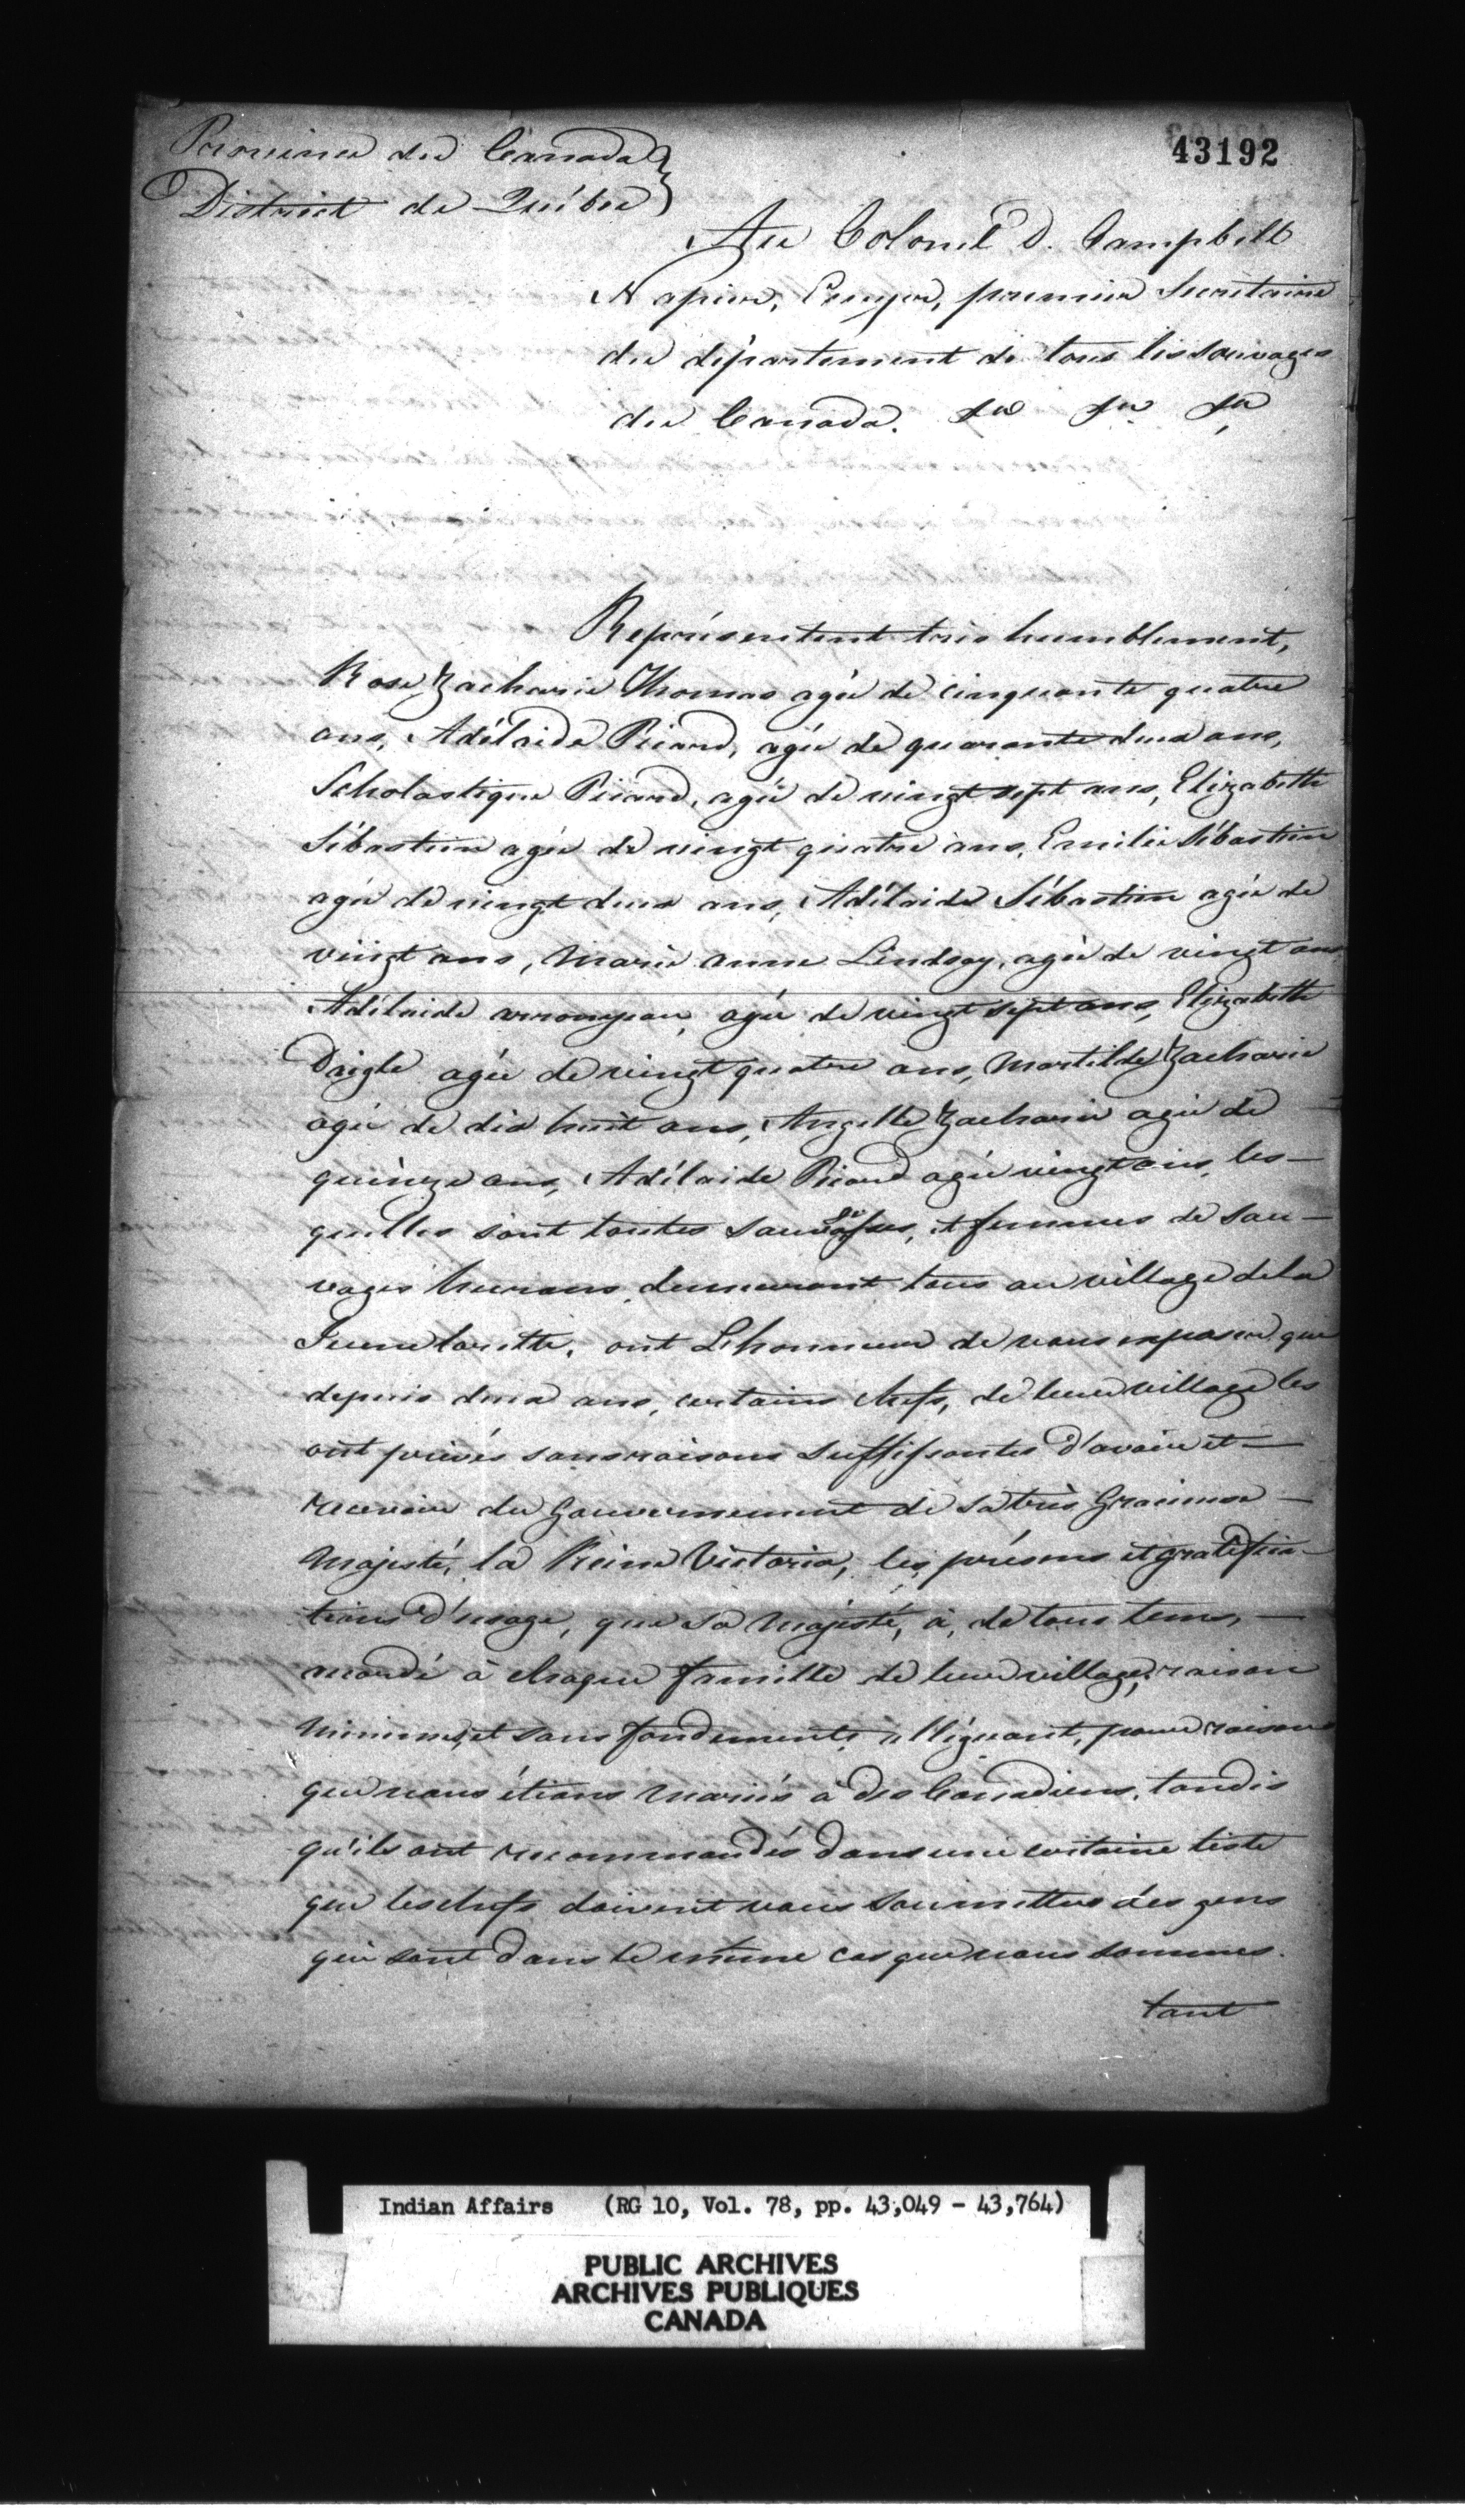 43192
Province du Canada }
District de Québec }
Au Colonel D. Campbell
Napier, Ecuyer, premier Secretaire
du département de tous les sauvages
du Canada. &c &c &c
Représentent très humblement,
Rose Zacharie Thomas agée de cinquante quatre
ans, Adélaide Picard, agée de quarante deux ans,
Scholastique Picard, agée de vingt sept ans, Elizabette
Sébastien agée de vingt quatre ans, Emilie Sébastien
agée de vingt deux ans, Adélaide Sébastien agée de
vingt ans, Marie anne Lindsay, agée de vingt ans,
Adélaide agée de vingt sept ans, Elizabette
Daigle agée de vingt quatre ans, Martilde Zacharie
agée de dix huit ans, Angelle Zacharie agée de
quinze ans, Adélaide Picard agée vingt ans, les-
quelles sont toutes sauvagesses, et femmes de sau-
vages hurons, demeurant tous au village de la
Jeune lorette, ont L'honneur de vous exposer que
depuis deux ans, certains chefs, de leur village les
ont privés sans raisons suffisantes d'avoir et
recevoir du Gouvernement de sa très Gracieuse
Majesté, la Reine Victoria, les présens et gratifica-
tions d'usage, que sa Majesté, à, de tous tems,
accordé à chaque famille de leur village, raison
minimes, et sans fondements alléguant, pour raisons
que nous étions mariés à des Canadiens, tandis
qu'ils ont recommandés dans une certaine liste
que les chefs doivent vous soumettre des gens
qui sont dans le même cas que nous sommes.
tant
Indian Affairs (RG 10, Vol. 78, pp. 43,049 - 43,764)
PUBLIC ARCHIVES
ARCHIVES PUBLIQUES
CANADA